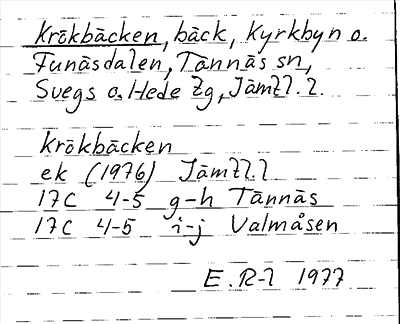 Krokbäcken, bäck, Kyrkbyn o.
Funäsdalen, Tännäs sn,
Svegs o. Hede tg, Jämtl. l.
Krokbäcken
ek (1976) Jämtl. l
17C 4-5 g-h Tännäs
17C 4-5 i-j Valmåsen
E. R-l 1977